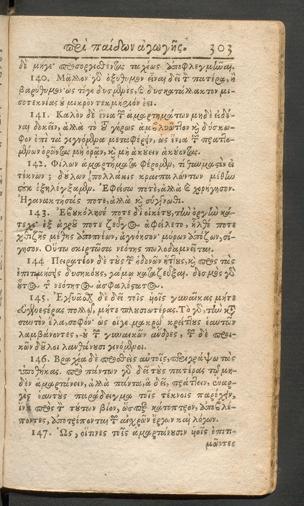 Περὶ παίδων ἀγωγῆς. 303
δὲ προσοργισθεὶς ταχέως ἀποφλεγμῆναι.
140. Μᾶλλον γὰρ ὀξύθυμον εἶναι δεῖ τὸν πατέρα, ἢ
βαρύθυμον· ὡς τό γε δυσμενὲς, καὶ δυσκατάλλακτον μι-
σοτεκνίας οὐ μικρὸν τεκμήριόν ἐστι.
141. Καλὸν δὲ ἔνια τῶν ἁμαρτημάτων μηδὲ εἰδέ-
ναι δοκεῖν, ἀλλὰ τὸ τοῦ γήρως ἀμβλυῶττον καὶ δύσκω-
φον ἐπὶ τὰ γιγνόμενα μεταφέρειν, ὡς ἔνια τῶν πραττο-
μένων ὁρῶντας μὴ ὁρᾷν, καὶ μὴ ἀκούειν ἀκούοντας.
142. Φίλων ἁμαρτήματα φέρομεν, τί θαυμαστὸν εἰ
τέκνων; δούλων πολλάκις κραιπαλώντων μέθην
οὐκ ἐξηλέγξαμεν. Ἐφείσω ποτὲ, ἀλλὰ καὶ χορήγησον.
Ἠγανάκτησάς ποτε, ἀλλὰ καὶ σύγγνωθι.
143. Ἐβουκόλησέ ποτε δι' οἰκέτου, τὴν ὀργὴν κά-
τεχε· ἐξ ἀγροῦ ποτε ζεῦγος ἀφείλετο, ἦλθέ ποτε
χθιζῆς μέθης ἀποπνέων, ἀγνόησον· μύρων ὄζων, σί-
γησον. Οὕτω σκιρτῶσα νεότης πωλοδαμνεῖται.
144. Πειρατέον δὲ τοὺς τῶν ἡδονῶν ἥττους, καὶ πρὸς τὰς
ἐπιτιμήσεις δυσηκόους, γάμῳ καταζεῦξαι. δεσμὸς γὰρ
οὗτος τῆς νεότητος ἀσφαλέστατος.
145. Ἐγγυᾶσθαι δὲ δεῖ τοῖς υἱοῖς γυναῖκας μήτε
εὐγενεστέρας πολλῷ, μήτε πλουσιωτέρας. Τὸ γὰρ, τὴν κατὰ
σαυτὸν ἔλα, σοφόν· ὡς οἵγε μακρῷ κρείττους ἑαυτῶν
λαμβάνοντες, οὐ τῶν γυναικῶν ἄνδρες, τῶν δὲ προι-
κῶν δοῦλοι λανθάνουσι γενόμενοι.
146. Βραχέα δὲ προσθεὶς αὐτοῖς, περιγράψω τὰς
ὑποθήκας. πρὸ πάντων γὰρ δεῖ τοὺς πατέρας τῷ μη-
δὲν ἁμαρτάνειν, ἀλλὰ πάντα, ἃ δεῖ, πράττειν, ἐναρ-
γὲς ἑαυτοὺς παράδειγμα τοῖς τέκνοις παρέχειν,
ἵνα πρὸς τὸν τούτων βίον, ὥσπερ κάτοπτρον, ἀποβλέ-
ποντες, ἀποτρέπωνται τῶν αἰσχρῶν ἔργων καὶ λόγων.
147. Ὡς, οἵτινες τοῖς ἁμαρτάνουσιν υἱοῖς ἐπιτι-
μῶντες